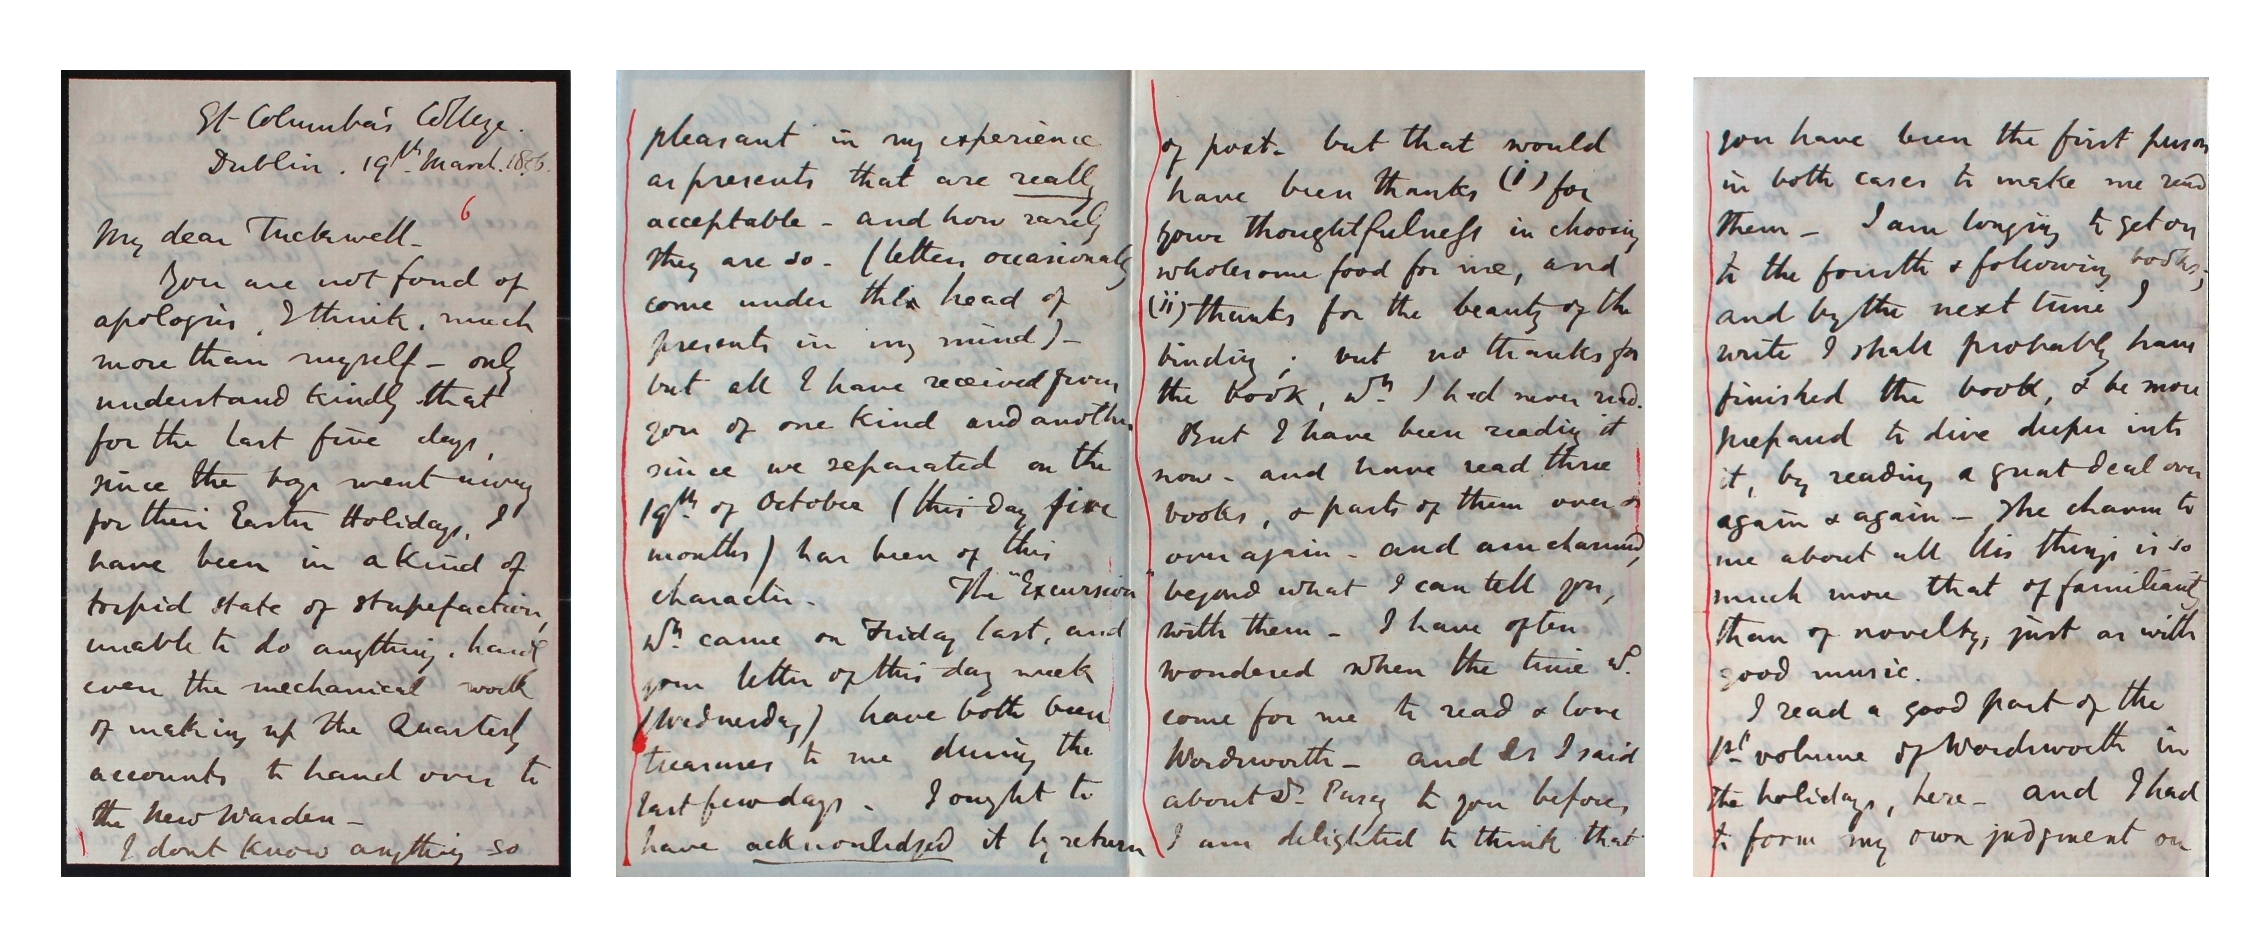 St. Columba's College.
Dublin. 19th March. 1856.
6
My dear Tuckwell –
You are not fond of
apologies, I think, much
more than myself – only
understand kindly that
for the last five days,
since the boys went away
for their Easter Holidays, I
have been in a kind of
torpid state of stupefaction,
unable to do anything, hardly
even the mechanical work
of making up the Quarterly
accounts to hand over to
the New Warden –
I dont know anything so
pleasant in my experience
as presents that are really
acceptable – and how rarely
they are so – (letters occasionally
come under this head of
presents in my mind) –
but all I have received from
you of one kind and another
since we separated on the
19th of October (this day five
months) has been of this
character. The "Excursion"
wh. came on Friday last, and
your letter of this day week
(Wednesday) have both been
treasures to me during the
last few days. I ought to
have acknowledged it by return
of post – but that would
have been thanks (i) for
your thoughtfulness in choosing
wholesome food for me, and
(ii) thanks for the beauty of the
binding; but no thanks for
the book, wh. I had never read.
But I have been reading it
now – and have read three
books, & parts of them over &
over again – and am charmed,
beyond what I can tell you,
with them – I have often
wondered when the time wd.
come for me to read & love
Wordsworth – and as I said
about Dr. Pusey to you before,
I am delighted to think that
you have been the first person
in both cases to make me read
them – I am longing to get on
to the fourth & following books;
and by the next time I
write I shall probably have
finished the book, & be more
prepared to dive deeper into
it, by reading a great deal over
again & again – The charm to
me about all his things is so
much more that of familiarity
than of novelty, just as with
good music.
I read a good part of the
1st volume of Wordsworth in
the holidays, here – and I had
to form my own judgment on